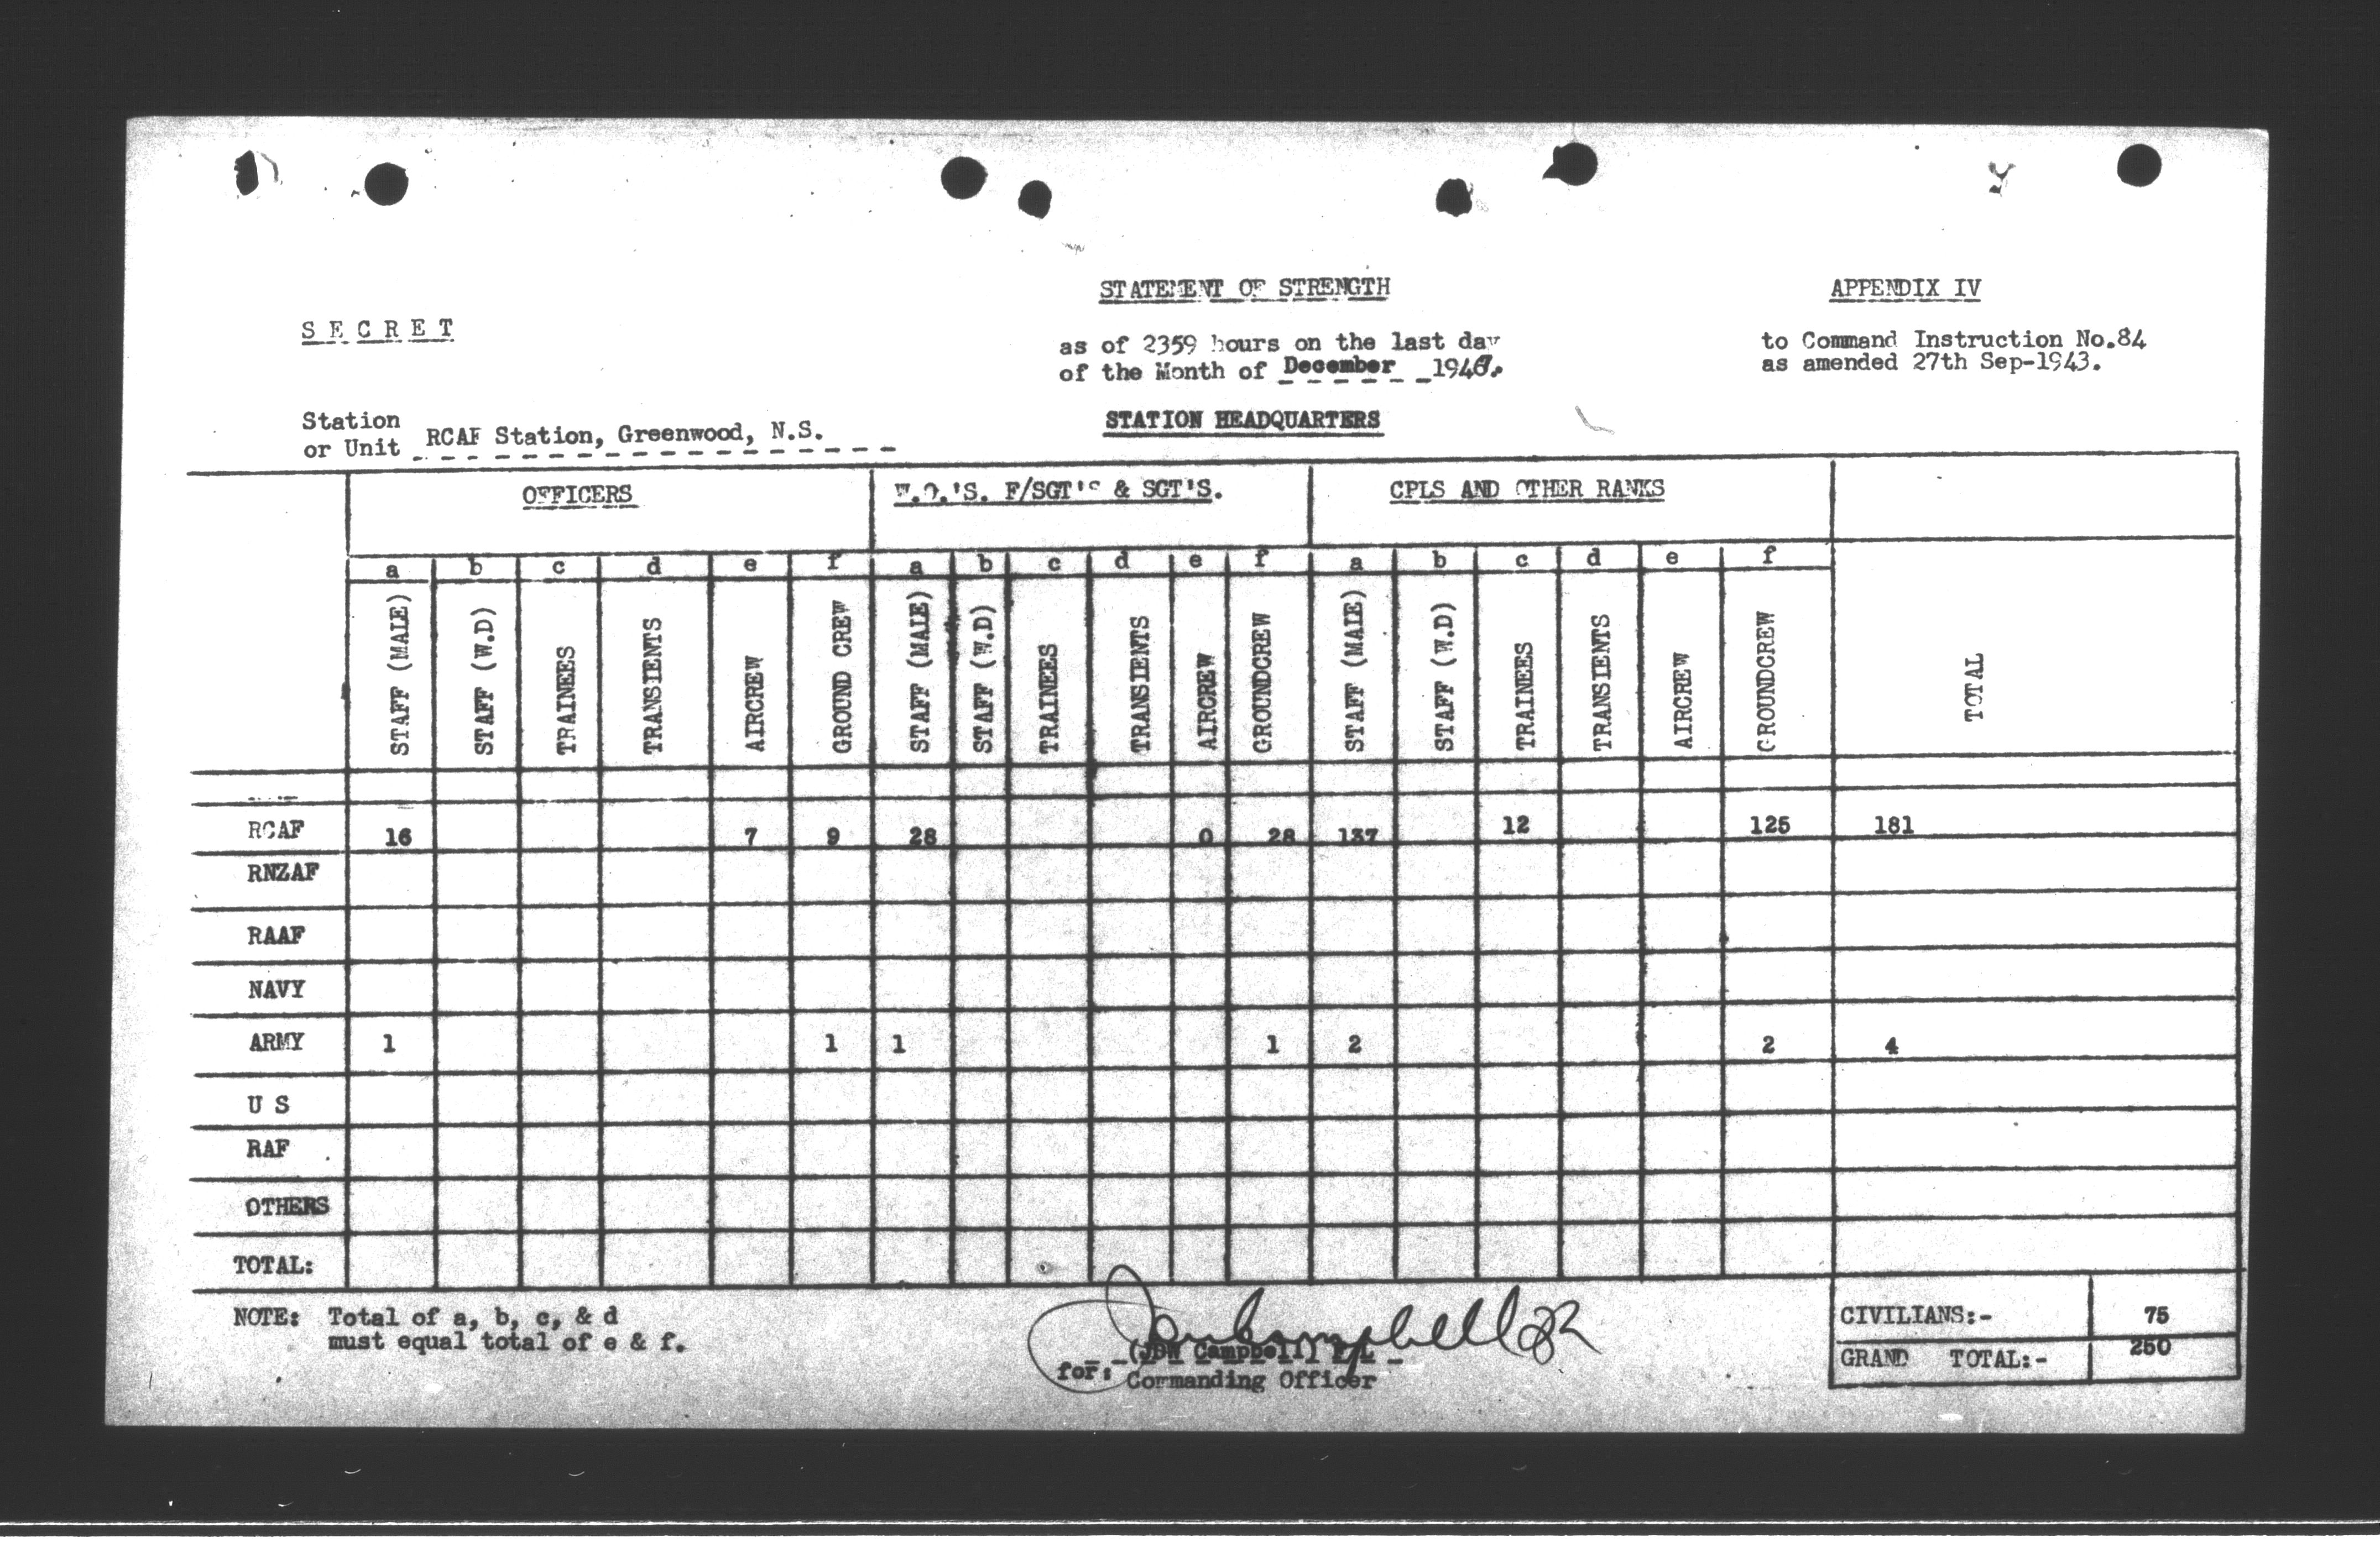 STATEMENT OF STRENGTH
APPENDIX IV
S E C R E T
as of 2359 hours on the last day
of the Month of December 1947.
to Command Instruction No.84
as amended 27th Sep-1943.
Station
or Unit RCAF Station, Greenwood, N.S.
STATION HEADQUARTERS
OFFICERS W.O.'S. F/SGT'S & SGT'S. CPLS AND OTHER RANKS
a b c d e f a b c d e f a b c d e f
STAFF (MALE) STAFF (W.D) TRAINEES TRANSIENTS AIRCREW GROUND CREW STAFF (MALE) STAFF (W.D) TRAINEES TRANSIENTS AIRCREW GROUNDCREW STAFF (MALE) STAFF (W.D) TRAINEES TRANSIENTS AIRCREW GROUNDCREW TOTAL
RCAF 16 7 9 28 0 28 137 12 125 181
RNZAF
RAAF
NAVY
ARMY 1 1 1 1 2 2 4
U S
RAF
OTHERS
TOTAL:
NOTE: Total of a, b, c, & d
must equal total of e & f.
(JDW Campbell) F/L
for: Commanding Officer
CIVILIANS:- 75
GRAND TOTAL:- 250